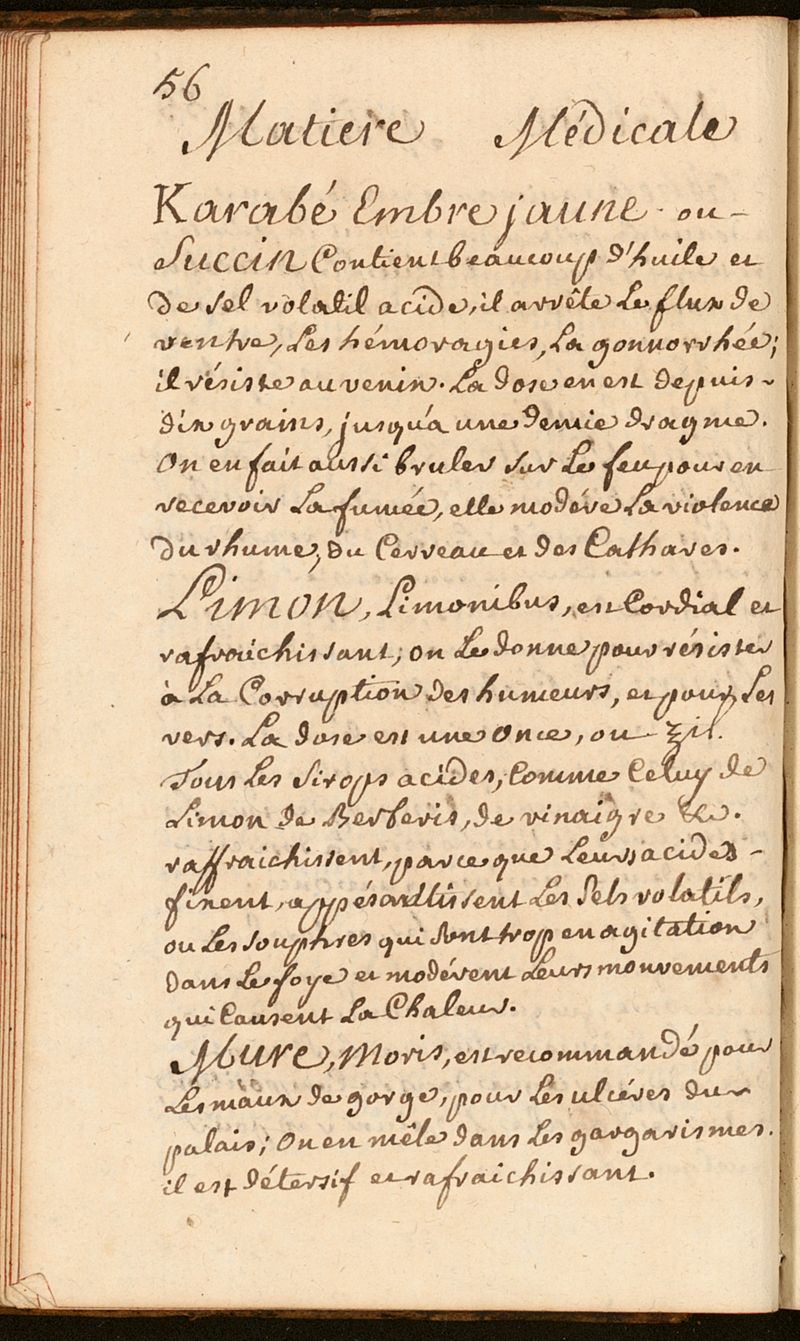 56
Matiere Médicale
Karabé Embre jaune ou -
Succin Contient beaucoup d'huile et
de sel volatil acide, il arrête Le flux de
ventre, Les hémoragies, La gonnorrhée;
il résiste au venin. La dose en est depuis -
dix grains, jusqu'a une demie dragme.
On en fait aussi bruler sur Le feu pour en
recevoir La fumée, elle modére La violence
du rhume, du Cerveau et des Cathares.
Limon, Limonibus, est Cordial et
rafraichissant, on Le donne pour résister
à La Corruption des humeurs, et pour Les
vers. La dose est une Once, ou
Tous Les Sirops acides, Comme Celuy de
Limon de Berberis, de vinaigre &c.
raffraichissent, parce que Leurs acides -
fixent, appésantissent Les Sels volatils,
ou Les souphres qui sont trop en agitation
dans Le foye et modérent Leurs mouvements
qui Causent La Chaleur.
Mure, Moris, est recommandé pour
Les maux de gorge, pour Les ulcéres du -
palais; On en mêle dans Les gargarismes.
il est détersif et rafraichissant.